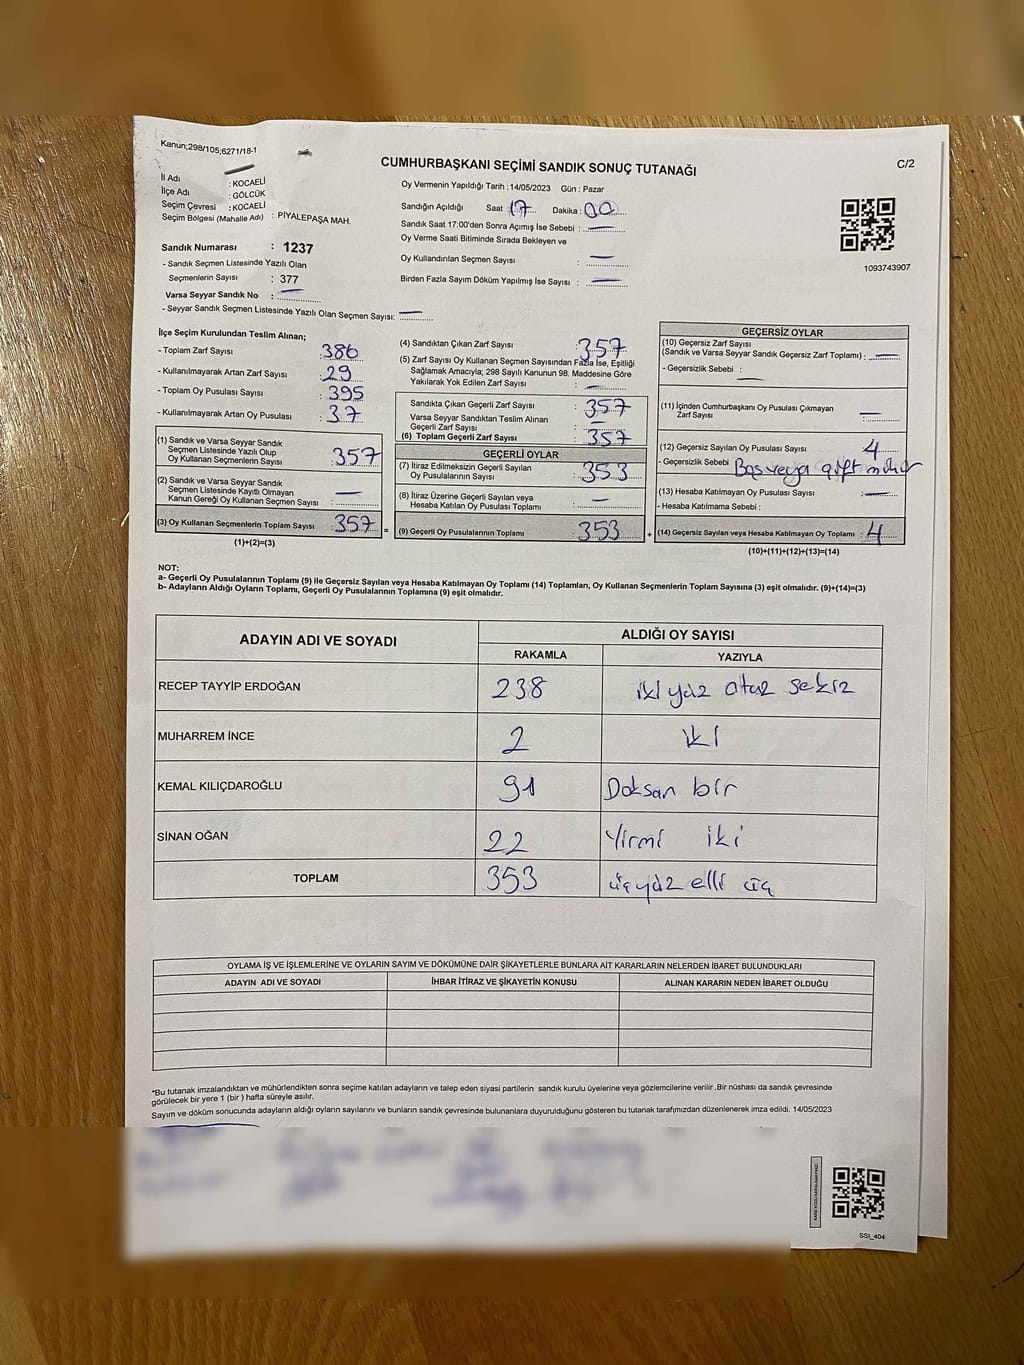 Kanun;298/105;6271/18-1
CUMHURBAŞKANI SEÇİMİ SANDIK SONUÇ TUTANAĞI
C/2
İl Adı : KOCAELİ
İlçe Adı : GÖLCÜK
Seçim Çevresi : KOCAELİ
Seçim Bölgesi (Mahalle Adı) : PİYALEPAŞA MAH.
Sandık Numarası : 1237
- Sandık Seçmen Listesinde Yazılı Olan
Seçmenlerin Sayısı : 377
Varsa Seyyar Sandık No : —
- Seyyar Sandık Seçmen Listesinde Yazılı Olan Seçmen Sayısı: —
Oy Vermenin Yapıldığı Tarih : 14/05/2023 Gün : Pazar
Sandığın Açıldığı Saat : 17 Dakika : 00
Sandık Saat 17:00'den Sonra Açımış İse Sebebi : —
Oy Verme Saati Bitiminde Sırada Bekleyen ve
Oy Kullandırılan Seçmen Sayısı : —
Birden Fazla Sayım Döküm Yapılmış İse Sayısı : —
1093743907
İlçe Seçim Kurulundan Teslim Alınan;
- Toplam Zarf Sayısı : 386
- Kullanılmayarak Artan Zarf Sayısı : 29
- Toplam Oy Pusulası Sayısı : 395
- Kullanılmayarak Artan Oy Pusulası : 37
(1) Sandık ve Varsa Seyyar Sandık
Seçmen Listesinde Yazılı Olup
Oy Kullanan Seçmenlerin Sayısı : 357
(2) Sandık ve Varsa Seyyar Sandık
Seçmen Listesinde Kayıtlı Olmayan
Kanun Gereği Oy Kullanan Seçmen Sayısı : —
(3) Oy Kullanan Seçmenlerin Toplam Sayısı : 357
(1)+(2)=(3)
=
(4) Sandıktan Çıkan Zarf Sayısı : 357
(5) Zarf Sayısı Oy Kullanan Seçmen Sayısından Fazla İse, Eşitliği
Sağlamak Amacıyla; 298 Sayılı Kanunun 98. Maddesine Göre
Yakılarak Yok Edilen Zarf Sayısı : —
Sandıkta Çıkan Geçerli Zarf Sayısı : 357
Varsa Seyyar Sandıktan Teslim Alınan
Geçerli Zarf Sayısı : —
(6) Toplam Geçerli Zarf Sayısı : 357
GEÇERLİ OYLAR
(7) İtiraz Edilmeksizin Geçerli Sayılan
Oy Pusulalarının Sayısı : 353
(8) İtiraz Üzerine Geçerli Sayılan veya
Hesaba Katılan Oy Pusulası Toplamı : —
(9) Geçerli Oy Pusulalarının Toplamı : 353
+
GEÇERSİZ OYLAR
(10) Geçersiz Zarf Sayısı
(Sandık ve Varsa Seyyar Sandık Geçersiz Zarf Toplamı) : —
- Geçersizlik Sebebi : —
(11) İçinden Cumhurbaşkanı Oy Pusulası Çıkmayan
Zarf Sayısı : —
(12) Geçersiz Sayılan Oy Pusulası Sayısı : 4
- Geçersizlik Sebebi : Boş veya çift mühür
(13) Hesaba Katılmayan Oy Pusulası Sayısı : —
- Hesaba Katılmama Sebebi :
(14) Geçersiz Sayılan veya Hesaba Katılmayan Oy Toplamı : 4
(10)+(11)+(12)+(13)=(14)
NOT:
a- Geçerli Oy Pusulalarının Toplamı (9) ile Geçersiz Sayılan veya Hesaba Katılmayan Oy Toplamı (14) Toplamları, Oy Kullanan Seçmenlerin Toplam Sayısına (3) eşit olmalıdır. (9)+(14)=(3)
b- Adayların Aldığı Oyların Toplamı, Geçerli Oy Pusulalarının Toplamına (9) eşit olmalıdır.
ADAYIN ADI VE SOYADI ALDIĞI OY SAYISI
RAKAMLA YAZIYLA
RECEP TAYYİP ERDOĞAN 238 iki yüz otuz sekiz
MUHARREM İNCE 2 iki
KEMAL KILIÇDAROĞLU 91 Doksan bir
SİNAN OĞAN 22 Yirmi iki
TOPLAM 353 üçyüz elli üç
OYLAMA İŞ VE İŞLEMLERİNE VE OYLARIN SAYIM VE DÖKÜMÜNE DAİR ŞİKAYETLERLE BUNLARA AİT KARARLARIN NELERDEN İBARET BULUNDUKLARI
ADAYIN ADI VE SOYADI İHBAR İTİRAZ VE ŞİKAYETİN KONUSU ALINAN KARARIN NEDEN İBARET OLDUĞU
*Bu tutanak imzalandıktan ve mühürlendikten sonra seçime katılan adayların ve talep eden siyasi partilerin sandık kurulu üyelerine veya gözlemcilerine verilir .Bir nüshası da sandık çevresinde
görülecek bir yere 1 (bir ) hafta süreyle asılır.
Sayım ve döküm sonucunda adayların aldığı oyların sayılarını ve bunların sandık çevresinde bulunanlara duyurulduğunu gösteren bu tutanak tarafımızdan düzenlenerek imza edildi. 14/05/2023
SSI_404